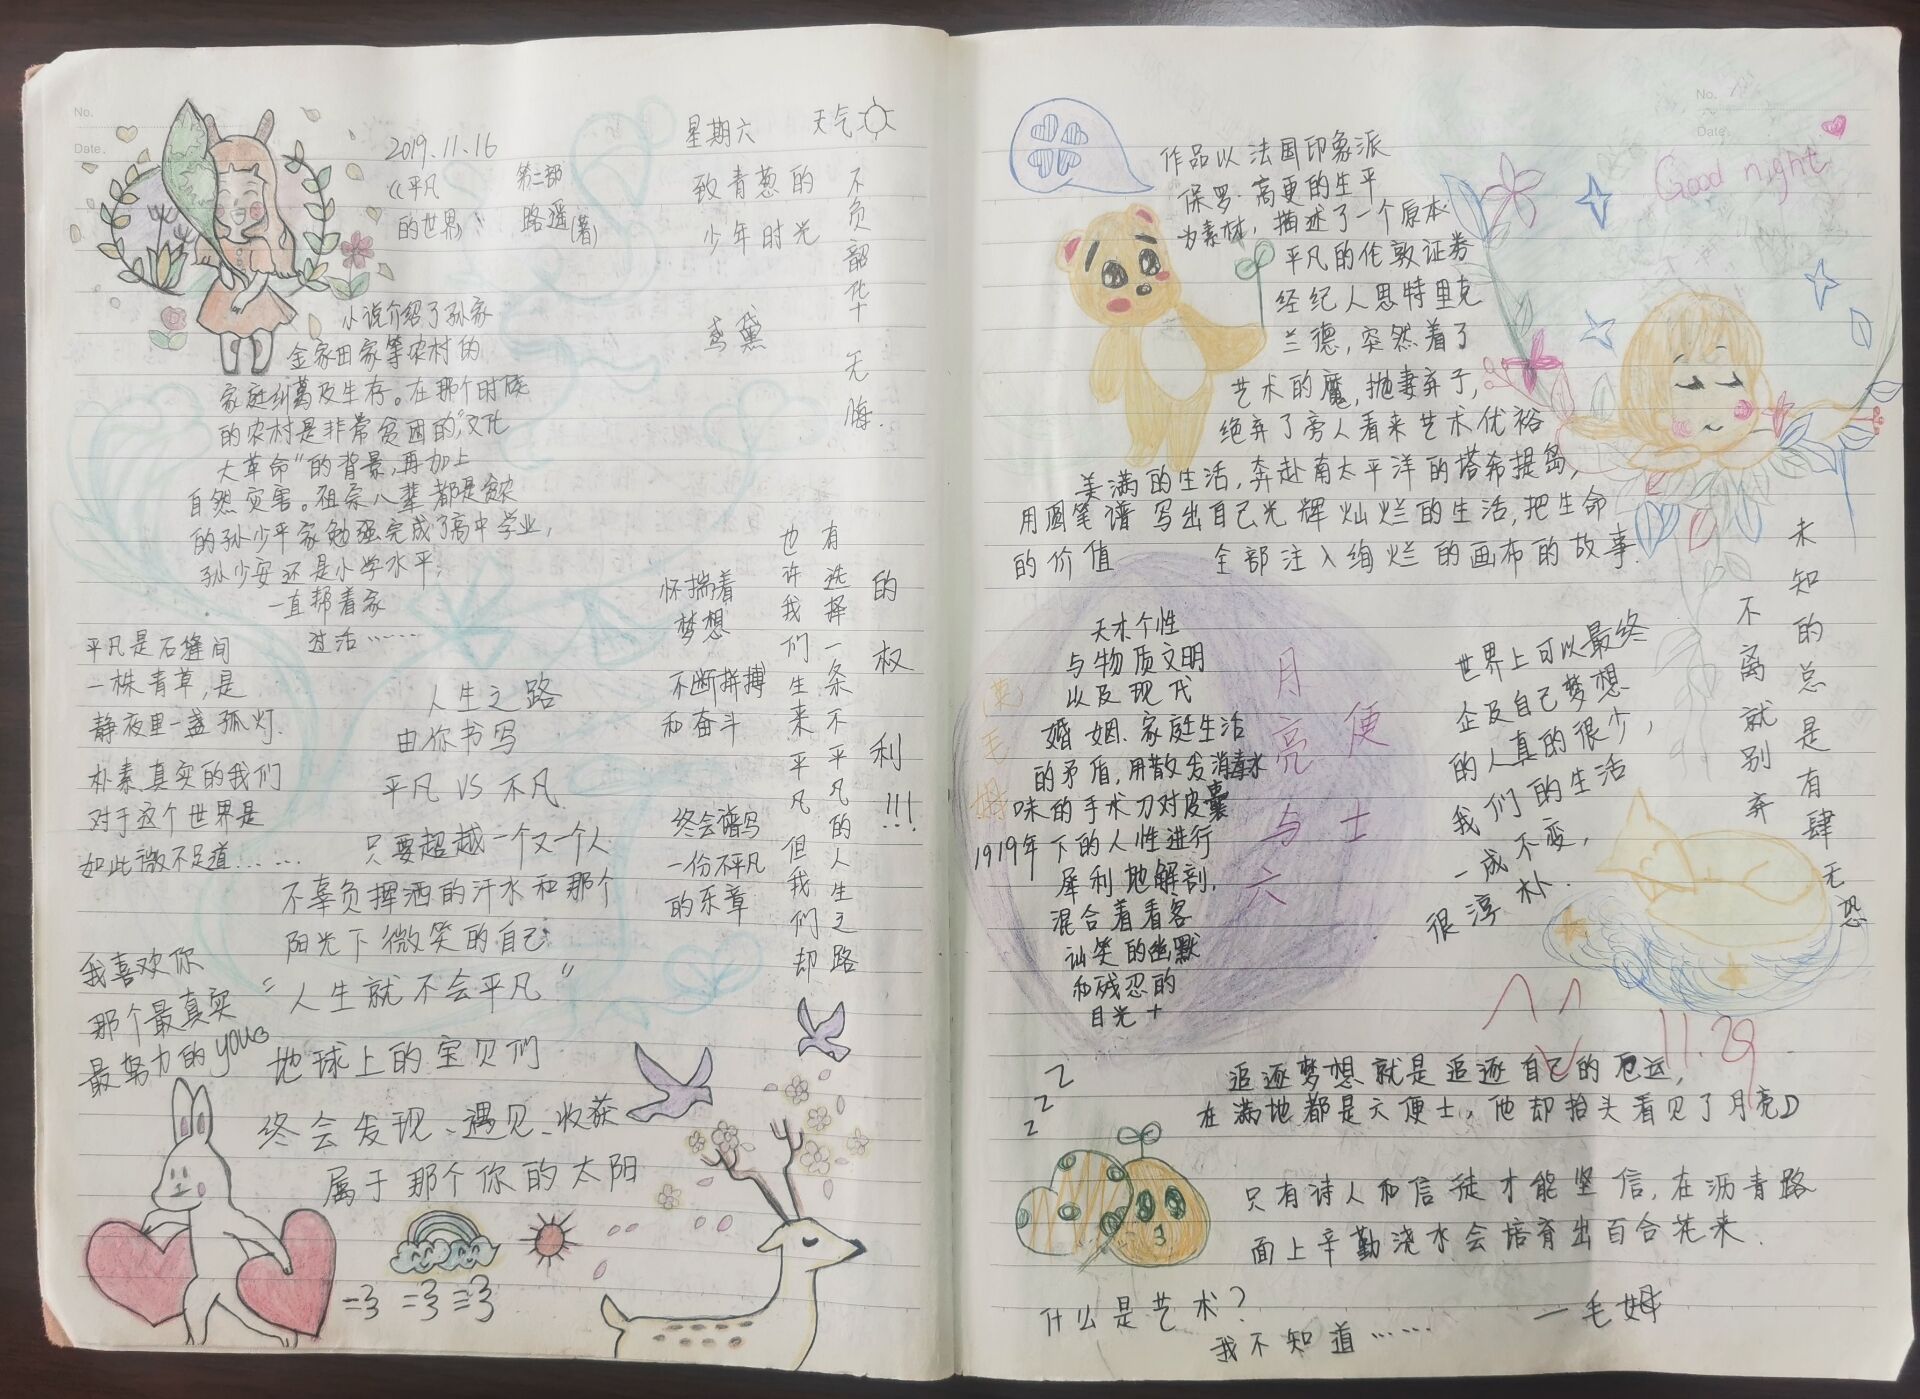 No.
Date.
2019.11.16
星期六
天气
《平凡
的世界》
第二部
路遥(著)
致青葱的
少年时光
鸢黛
不负韶华
无悔.
小说介绍了孙家
金家田家等农村的
家庭纠葛及生存。在那个时候
的农村是非常贫困的,"文化
大革命"的背景,再加上
自然灾害。祖宗八辈都是贫农
的孙少平家勉强完成了高中学业,
孙少安还是小学水平;
一直帮着家
过活……
平凡是石缝间
一株青草,是
静夜里一盏孤灯.
朴素、真实的我们
对于这个世界是
如此微不足道……
人生之路
由你书写
平凡 VS 不凡
只要超越一个又一个人
不辜负挥洒的汗水和那个
阳光下微笑的自己
"人生就不会平凡"
我喜欢你
那个最真实
最努力的you
地球上的宝贝们
终会发现、遇见、收获
属于那个你的太阳
怀揣着
梦想
不断拼搏
和奋斗
终会谱写
一份不平凡
的乐章
也许我们生来平凡但我们却
有选择一条不平凡的人生之路
的权利!!!
No.
Date.
Good night
作品以法国印象派
保罗·高更的生平
为素材,描述了一个原本
平凡的伦敦证券
经纪人思特里克
兰德,突然着了
艺术的魔,抛妻弃子,
绝弃了旁人看来艺术优裕
美满的生活,奔赴南太平洋的塔希提岛,
用圆笔谱写出自己光辉灿烂的生活,把生命
的价值 全部注入绚烂的画布的故事.
天才个性
与物质文明
以及现代
婚姻、家庭生活
的矛盾,用散发消毒水
味的手术刀对皮囊
下的人性进行
犀利地解剖,
混合着看客
讪笑的幽默
和残忍的
目光
(英)毛姆
1919年
月亮与六
便士
世界上可以最终
企及自己梦想
的人真的很少,
我们的生活
一成不变,
很淳朴.
未知的总是有肆无恐
不离就别弃
11.29
追逐梦想就是追逐自己的厄运,
在满地都是六便士,他却抬头看见了月亮
z
z
z
只有诗人和信徒才能坚信,在沥青路
面上辛勤浇水会培育出百合花来.
—毛姆
什么是艺术?
我不知道……